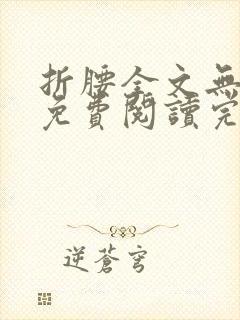 折腰全文無
免費閱讀完
逆蒼穹